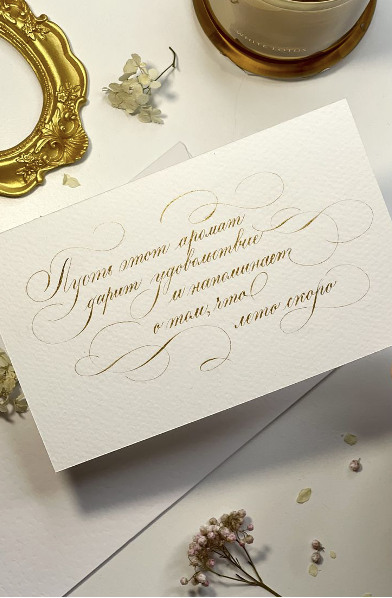 WHITE LOTUS
Пусть этот аромат
дарит удовольствие
и напоминает
о том, что
лето скоро